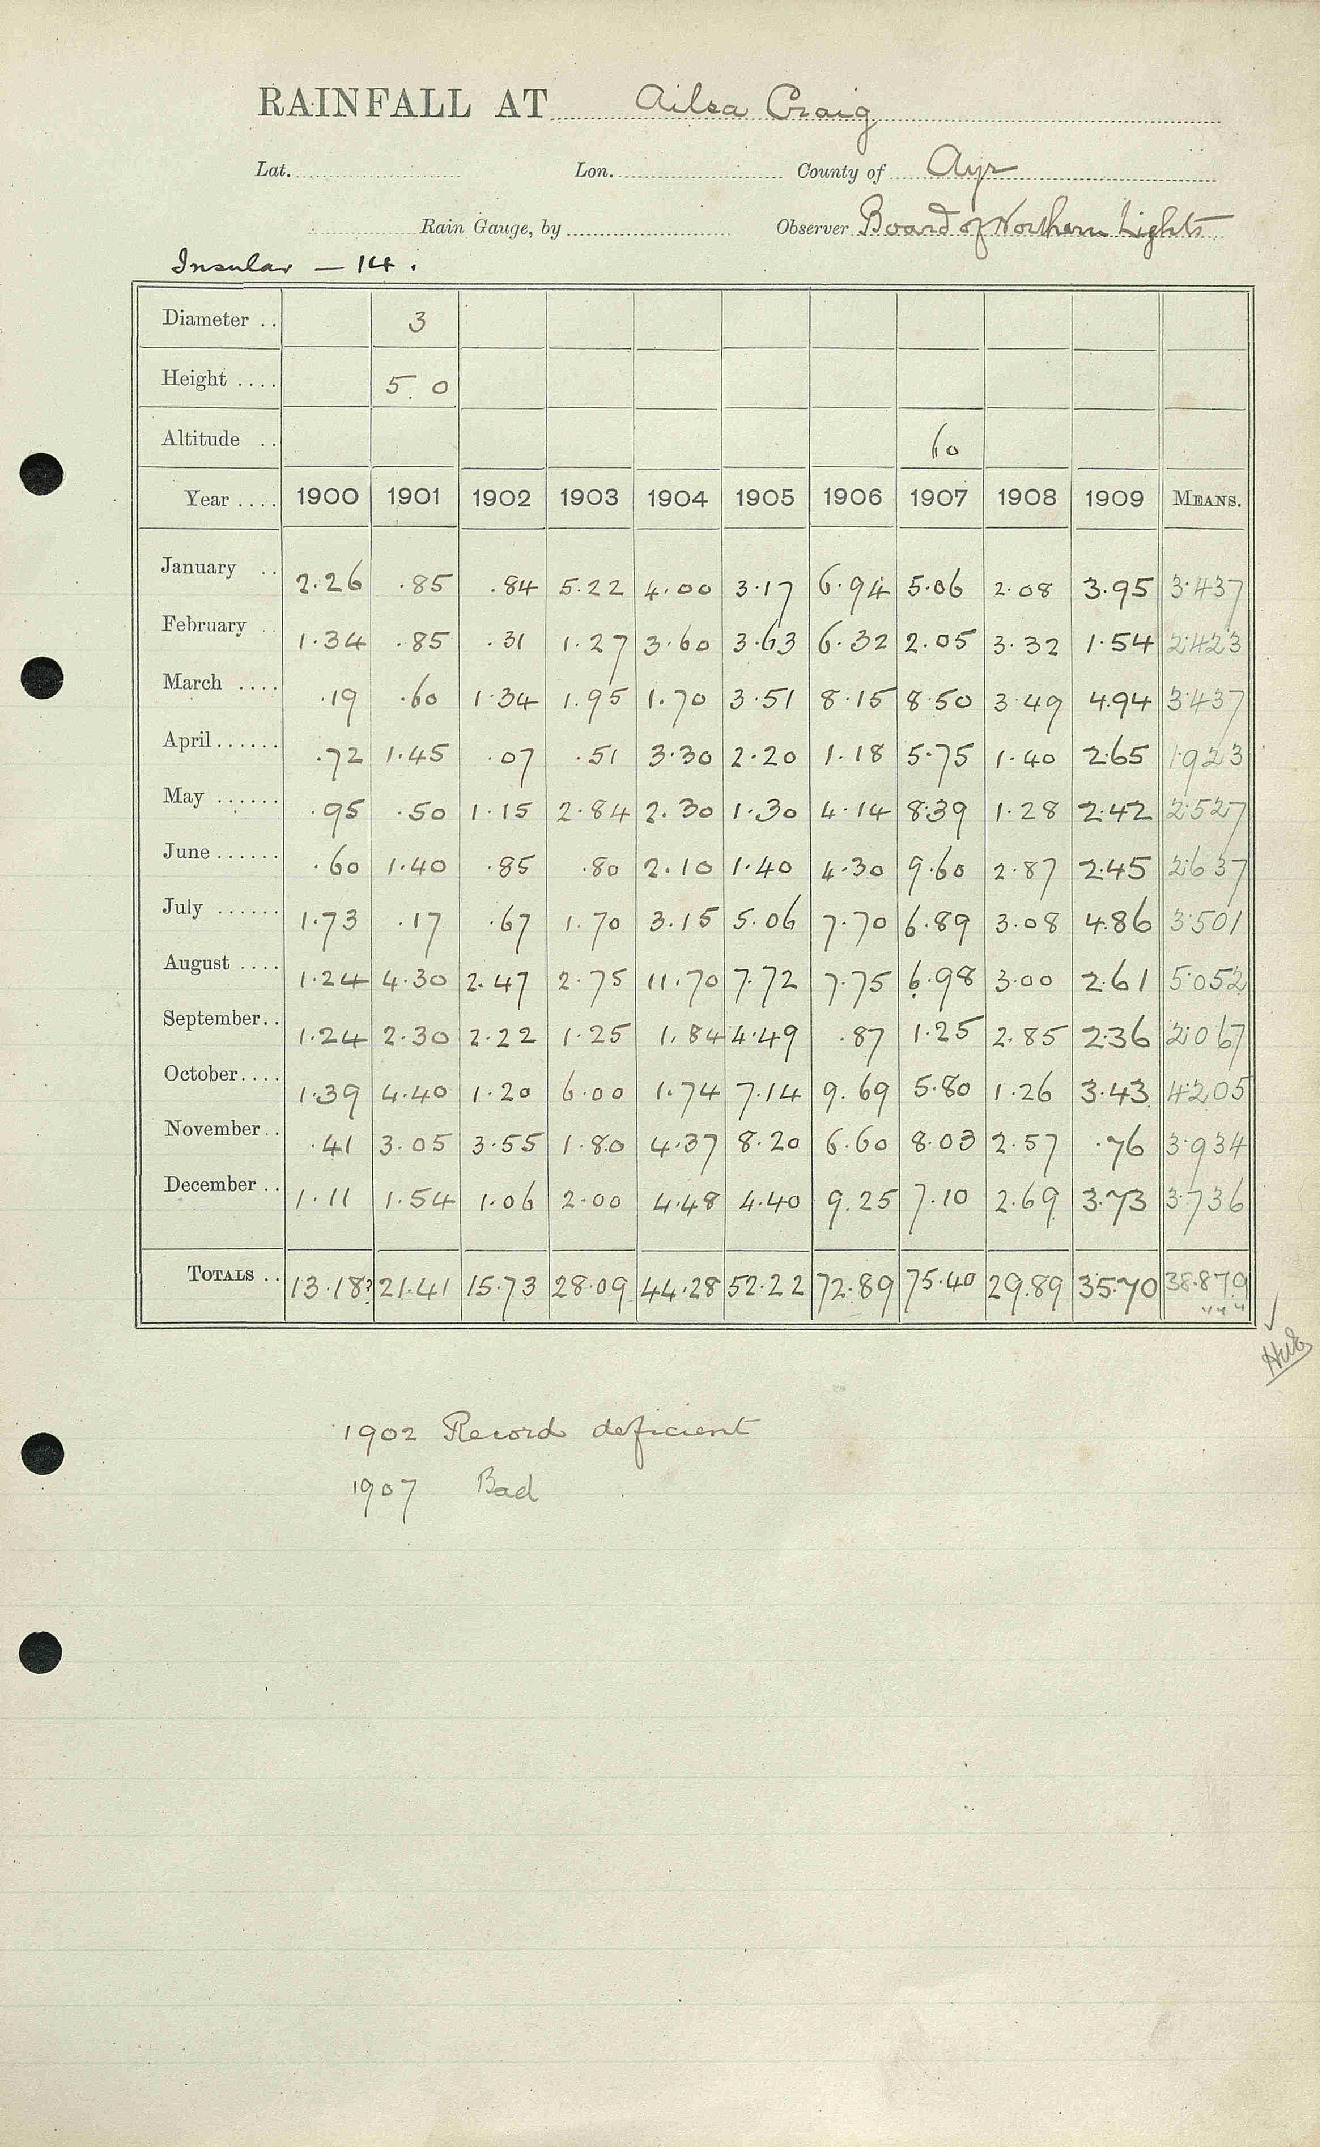 RAINFALL AT Ailsa Craig
Lat. Lon. County of Ayr
Rain Gauge, by Observer Board of Northern Lights
Insular — 14.
Diameter .. 3
Height .... 5 0
Altitude .. 60
Year .... 1900 1901 1902 1903 1904 1905 1906 1907 1908 1909 MEANS.
January .. 2.26 .85 .84 5.22 4.00 3.17 6.94 5.06 2.08 3.95 3.437
February .. 1.34 .85 .31 1.27 3.60 3.63 6.32 2.05 3.32 1.54 2.423
March .... .19 .60 1.34 1.95 1.70 3.51 8.15 8.50 3.49 4.94 3.437
April ...... .72 1.45 .07 .51 3.30 2.20 1.18 5.75 1.40 2.65 1.923
May ...... .95 .50 1.15 2.84 2.30 1.30 4.14 8.39 1.28 2.42 2.527
June ...... .60 1.40 .85 .80 2.10 1.40 4.30 9.60 2.87 2.45 2.637
July ...... 1.73 .17 .67 1.70 3.15 5.06 7.70 6.89 3.08 4.86 3.501
August .... 1.24 4.30 2.47 2.75 11.70 7.72 7.75 6.98 3.00 2.61 5.052
September .. 1.24 2.30 2.22 1.25 1.84 4.49 .87 1.25 2.85 2.36 2.067
October .... 1.39 4.40 1.20 6.00 1.74 7.14 9.69 5.80 1.26 3.43 4.205
November .. .41 3.05 3.55 1.80 4.37 8.20 6.60 8.03 2.57 .76 3.934
December .. 1.11 1.54 1.06 2.00 4.48 4.40 9.25 7.10 2.69 3.73 3.736
TOTALS .. 13.18? 21.41 15.73 28.09 44.28 52.22 72.89 75.40 29.89 35.70 38.879
1902 Record deficient
1907 Bad